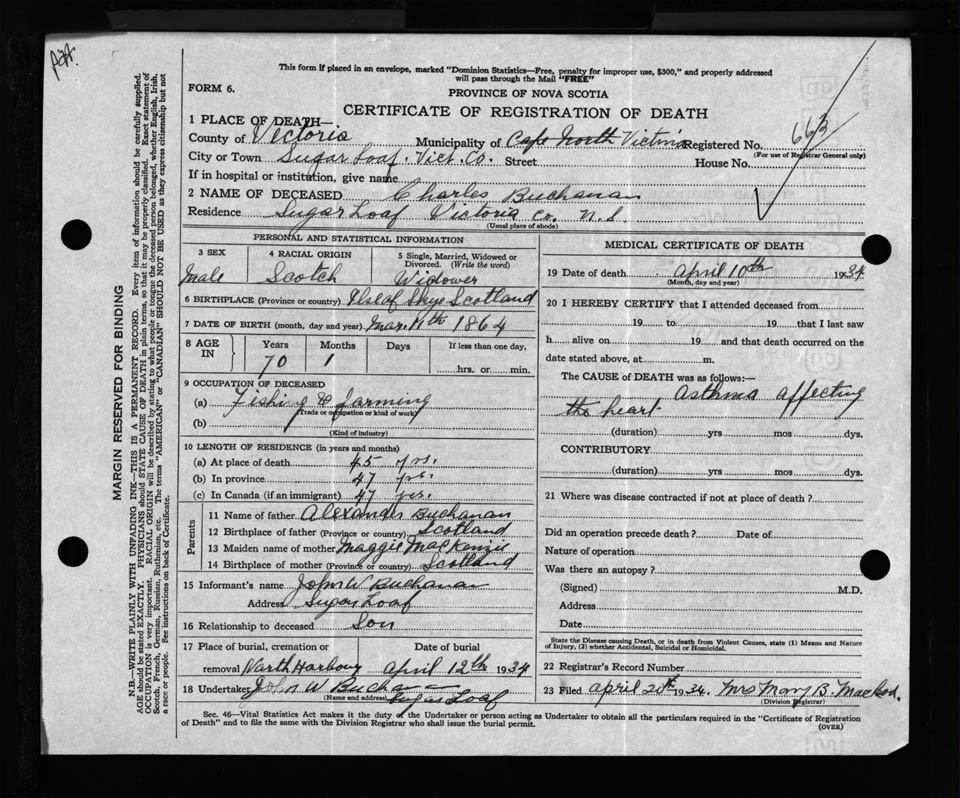 pdt.
This form if placed in an envelope, marked "Dominion Statistics—Free, penalty for improper use, $300," and properly addressed
will pass through the Mail "FREE"
FORM 6.
PROVINCE OF NOVA SCOTIA
CERTIFICATE OF REGISTRATION OF DEATH
1 PLACE OF DEATH—
County of Victoria Municipality of Cape North Victoria Registered No. 663
(For use of Registrar General only)
City or Town Sugar Loaf. Vict. Co. Street House No.
If in hospital or institution, give name
2 NAME OF DECEASED Charles Buchanan
Residence Sugar Loaf Victoria Co. N.S
(Usual place of abode)
PERSONAL AND STATISTICAL INFORMATION
3 SEX 4 RACIAL ORIGIN 5 Single, Married, Widowed or Divorced. (Write the word)
Male Scotch Widower
6 BIRTHPLACE (Province or country) Isle of Skye Scotland
7 DATE OF BIRTH (month, day and year) Mar 11th 1864
8 AGE IN Years Months Days If less than one day,
70 1 hrs. or min.
9 OCCUPATION OF DECEASED
(a) Fishing & farming
(Trade or occupation or kind of work)
(b)
(Kind of industry)
10 LENGTH OF RESIDENCE (in years and months)
(a) At place of death 45 yrs.
(b) In province 47 yrs.
(c) In Canada (if an immigrant) 47 yrs.
Parents
11 Name of father Alexander Buchanan
12 Birthplace of father (Province or country) Scotland
13 Maiden name of mother Maggie MacKenzie
14 Birthplace of mother (Province or country) Scotland
15 Informant's name John W. Buchanan
Address Sugar Loaf
16 Relationship to deceased Son
17 Place of burial, cremation or Date of burial
removal North Harbour April 12th 1934
18 Undertaker John W Buchanan
(Name and address) Sugar Loaf
MEDICAL CERTIFICATE OF DEATH
19 Date of death April 10th 1934
(Month, day and year)
20 I HEREBY CERTIFY that I attended deceased from
19 to 19 that I last saw
h alive on 19 and that death occurred on the
date stated above, at m.
The CAUSE of DEATH was as follows:—
Asthma affecting
the heart
(duration) yrs mos dys.
CONTRIBUTORY
(duration) yrs mos dys.
21 Where was disease contracted if not at place of death?
Did an operation precede death? Date of
Nature of operation
Was there an autopsy?
(Signed) M.D.
Address
Date
State the Disease causing Death, or in death from Violent Causes, state (1) Means and Nature
of Injury, (2) whether Accidental, Suicidal or Homicidal.
22 Registrar's Record Number
23 Filed April 28th 1934. Mrs Mary B. MacLeod.
(Division Registrar)
Sec. 46—Vital Statistics Act makes it the duty of the Undertaker or person acting as Undertaker to obtain all the particulars required in the "Certificate of Registration
of Death" and to file the same with the Division Registrar who shall issue the burial permit.
(OVER)
MARGIN RESERVED FOR BINDING
N.B.—WRITE PLAINLY WITH UNFADING INK—THIS IS A PERMANENT RECORD. Every item of information should be carefully supplied.
AGE should be stated EXACTLY. PHYSICIANS should STATE CAUSE OF DEATH in plain terms, so that it may be properly classified. Exact statement of
OCCUPATION is very important. RACIAL ORIGIN will be described by stating to what people or tongue the deceased person belonged, whether English, Irish,
Scotch, French, German, Russian, Ruthenian, etc. The terms "AMERICAN" or "CANADIAN" SHOULD NOT BE USED as they express citizenship but not
a race or people. See instructions on back of Certificate.